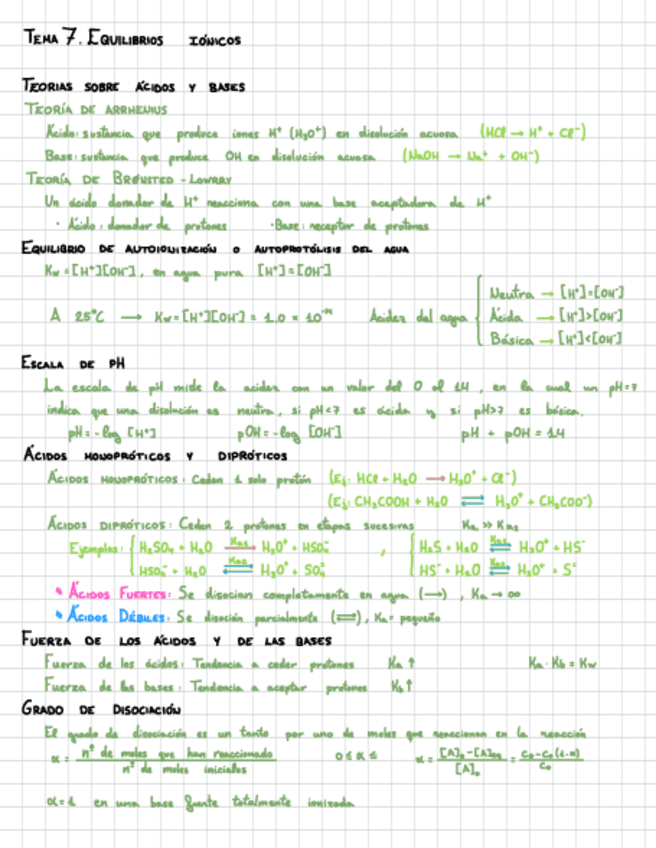 TEMA 7. EQUILIBRIOS IÓNICOS
TEORIAS SOBRE ÁCIDOS Y BASES
TEORÍA DE ARRHENIUS
Ácido: sustancia que produce iones H⁺ (H₃O⁺) en disolución acuosa (HCl → H⁺ + Cl⁻)
Base: sustancia que produce OH en disolución acuosa (NaOH → Na⁺ + OH⁻)
TEORÍA DE BRØNSTED - LOWRY
Un ácido donador de H⁺ reacciona con una base aceptadora de H⁺
· Ácido: donador de protones · Base: receptor de protones
EQUILIBRIO DE AUTOIONIZACIÓN O AUTOPROTÓLISIS DEL AGUA
Kw = [H⁺][OH⁻], en agua pura [H⁺]=[OH⁻]
Neutra → [H⁺]=[OH⁻]
A 25°C → Kw = [H⁺][OH⁻] = 1,0 × 10⁻¹⁴ Acidez del agua { Ácida → [H⁺]>[OH⁻]
Básica → [H⁺]<[OH⁻]
ESCALA DE PH
La escala de pH mide la acidez con un valor del 0 al 14, en la cual un pH=7
indica que una disolución es neutra, si pH<7 es ácida y si pH>7 es básica.
pH = -log [H⁺] pOH = -log [OH⁻] pH + pOH = 14
ÁCIDOS MONOPRÓTICOS Y DIPRÓTICOS
ÁCIDOS MONOPRÓTICOS: Ceden 1 solo protón (Ej: HCl + H₂O → H₃O⁺ + Cl⁻)
(Ej: CH₃COOH + H₂O ⇌ H₃O⁺ + CH₃COO⁻)
ÁCIDOS DIPRÓTICOS: Ceden 2 protones en etapas sucesivas Ka₁ >> Ka₂
Ejemplos: { H₂SO₄ + H₂O →(Ka₁) H₃O⁺ + HSO₄⁻ , { H₂S + H₂O ⇌(Ka₁) H₃O⁺ + HS⁻
HSO₄⁻ + H₂O ⇌(Ka₂) H₃O⁺ + SO₄⁻ HS⁻ + H₂O ⇌(Ka₂) H₃O⁺ + S⁻
* ÁCIDOS FUERTES: Se disocian completamente en agua (→), Ka → ∞
* ÁCIDOS DÉBILES: Se disocian parcialmente (⇌), Ka = pequeño
FUERZA DE LOS ÁCIDOS Y DE LAS BASES
Fuerza de los ácidos: Tendencia a ceder protones Ka ↑ Ka · Kb = Kw
Fuerza de las bases: Tendencia a aceptar protones Kb ↑
GRADO DE DISOCIACIÓN
El grado de disociación es un tanto por uno de moles que reaccionan en la reacción
α = nº de moles que han reaccionado / nº de moles iniciales 0 ≤ α ≤ α = [A]₀-[A]eq / [A]₀ = c₀-c₀(1-α) / c₀
α=1 en una base fuerte totalmente ionizada